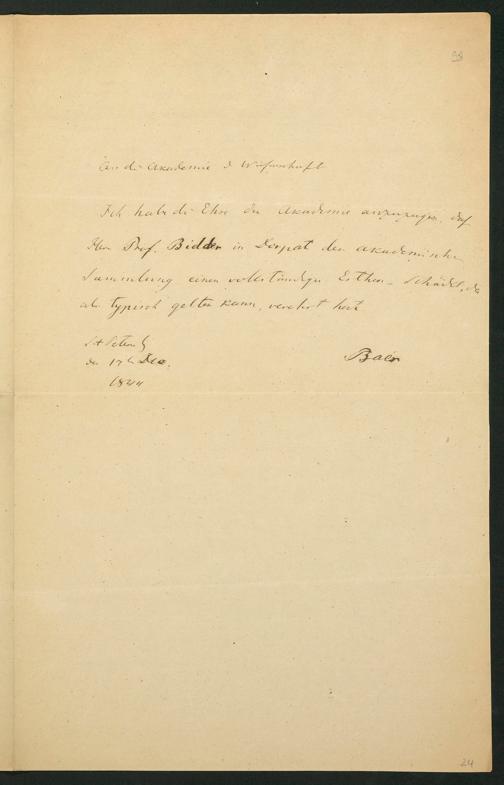 An die Akademie d Wissenschaft
Ich habe die Ehre der Akademie anzuzeigen, daß
Herr Prof. Bidder in Dorpat der akademischen
Sammlung einen vollständigen Esthen-Schädel, der
als typisch gelten kann, verehrt hat
St Petersb
den 17t Dec.
Baer
24